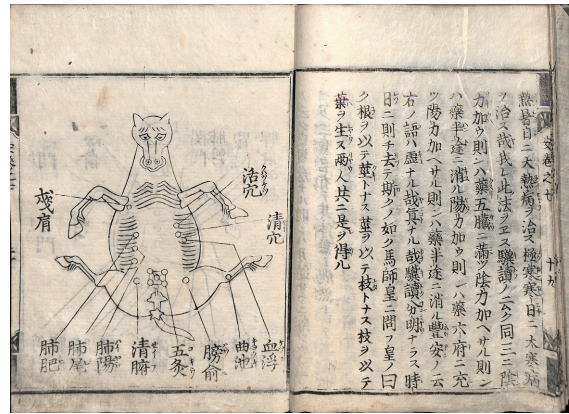 熱暑日ニ大熱病ヲ治ス極寒寒日ニ大寒病
ヲ治ス哉我レ此法ヲエス驥讀ノ云ク同ニ三陰
力加ウ則ンハ藥五臓ニ滿ツ陰力加ヘサル則ン
ハ藥半途ニ消ル陽力加ウ則ンハ藥六府ニ充
ツ陽力加ヘサル則ンハ藥半途ニ消ル豊安ノ云
右ノ語ハ虚ナル哉眞ナル哉驥讀分明ナラス時
日ニ則チ去テ斯クノ如ク馬師皇ニ問フ皇ノ曰
ク根ヲ以テ莖トナス莖ヲ以テ枝トナス枝ヲ以テ
葉ヲ生ス兩人共ニ是ヲ得ル
沽穴
清穴
血浮
曲池
膀俞
五灸
清腑
肺陽
肺尾
肺肥